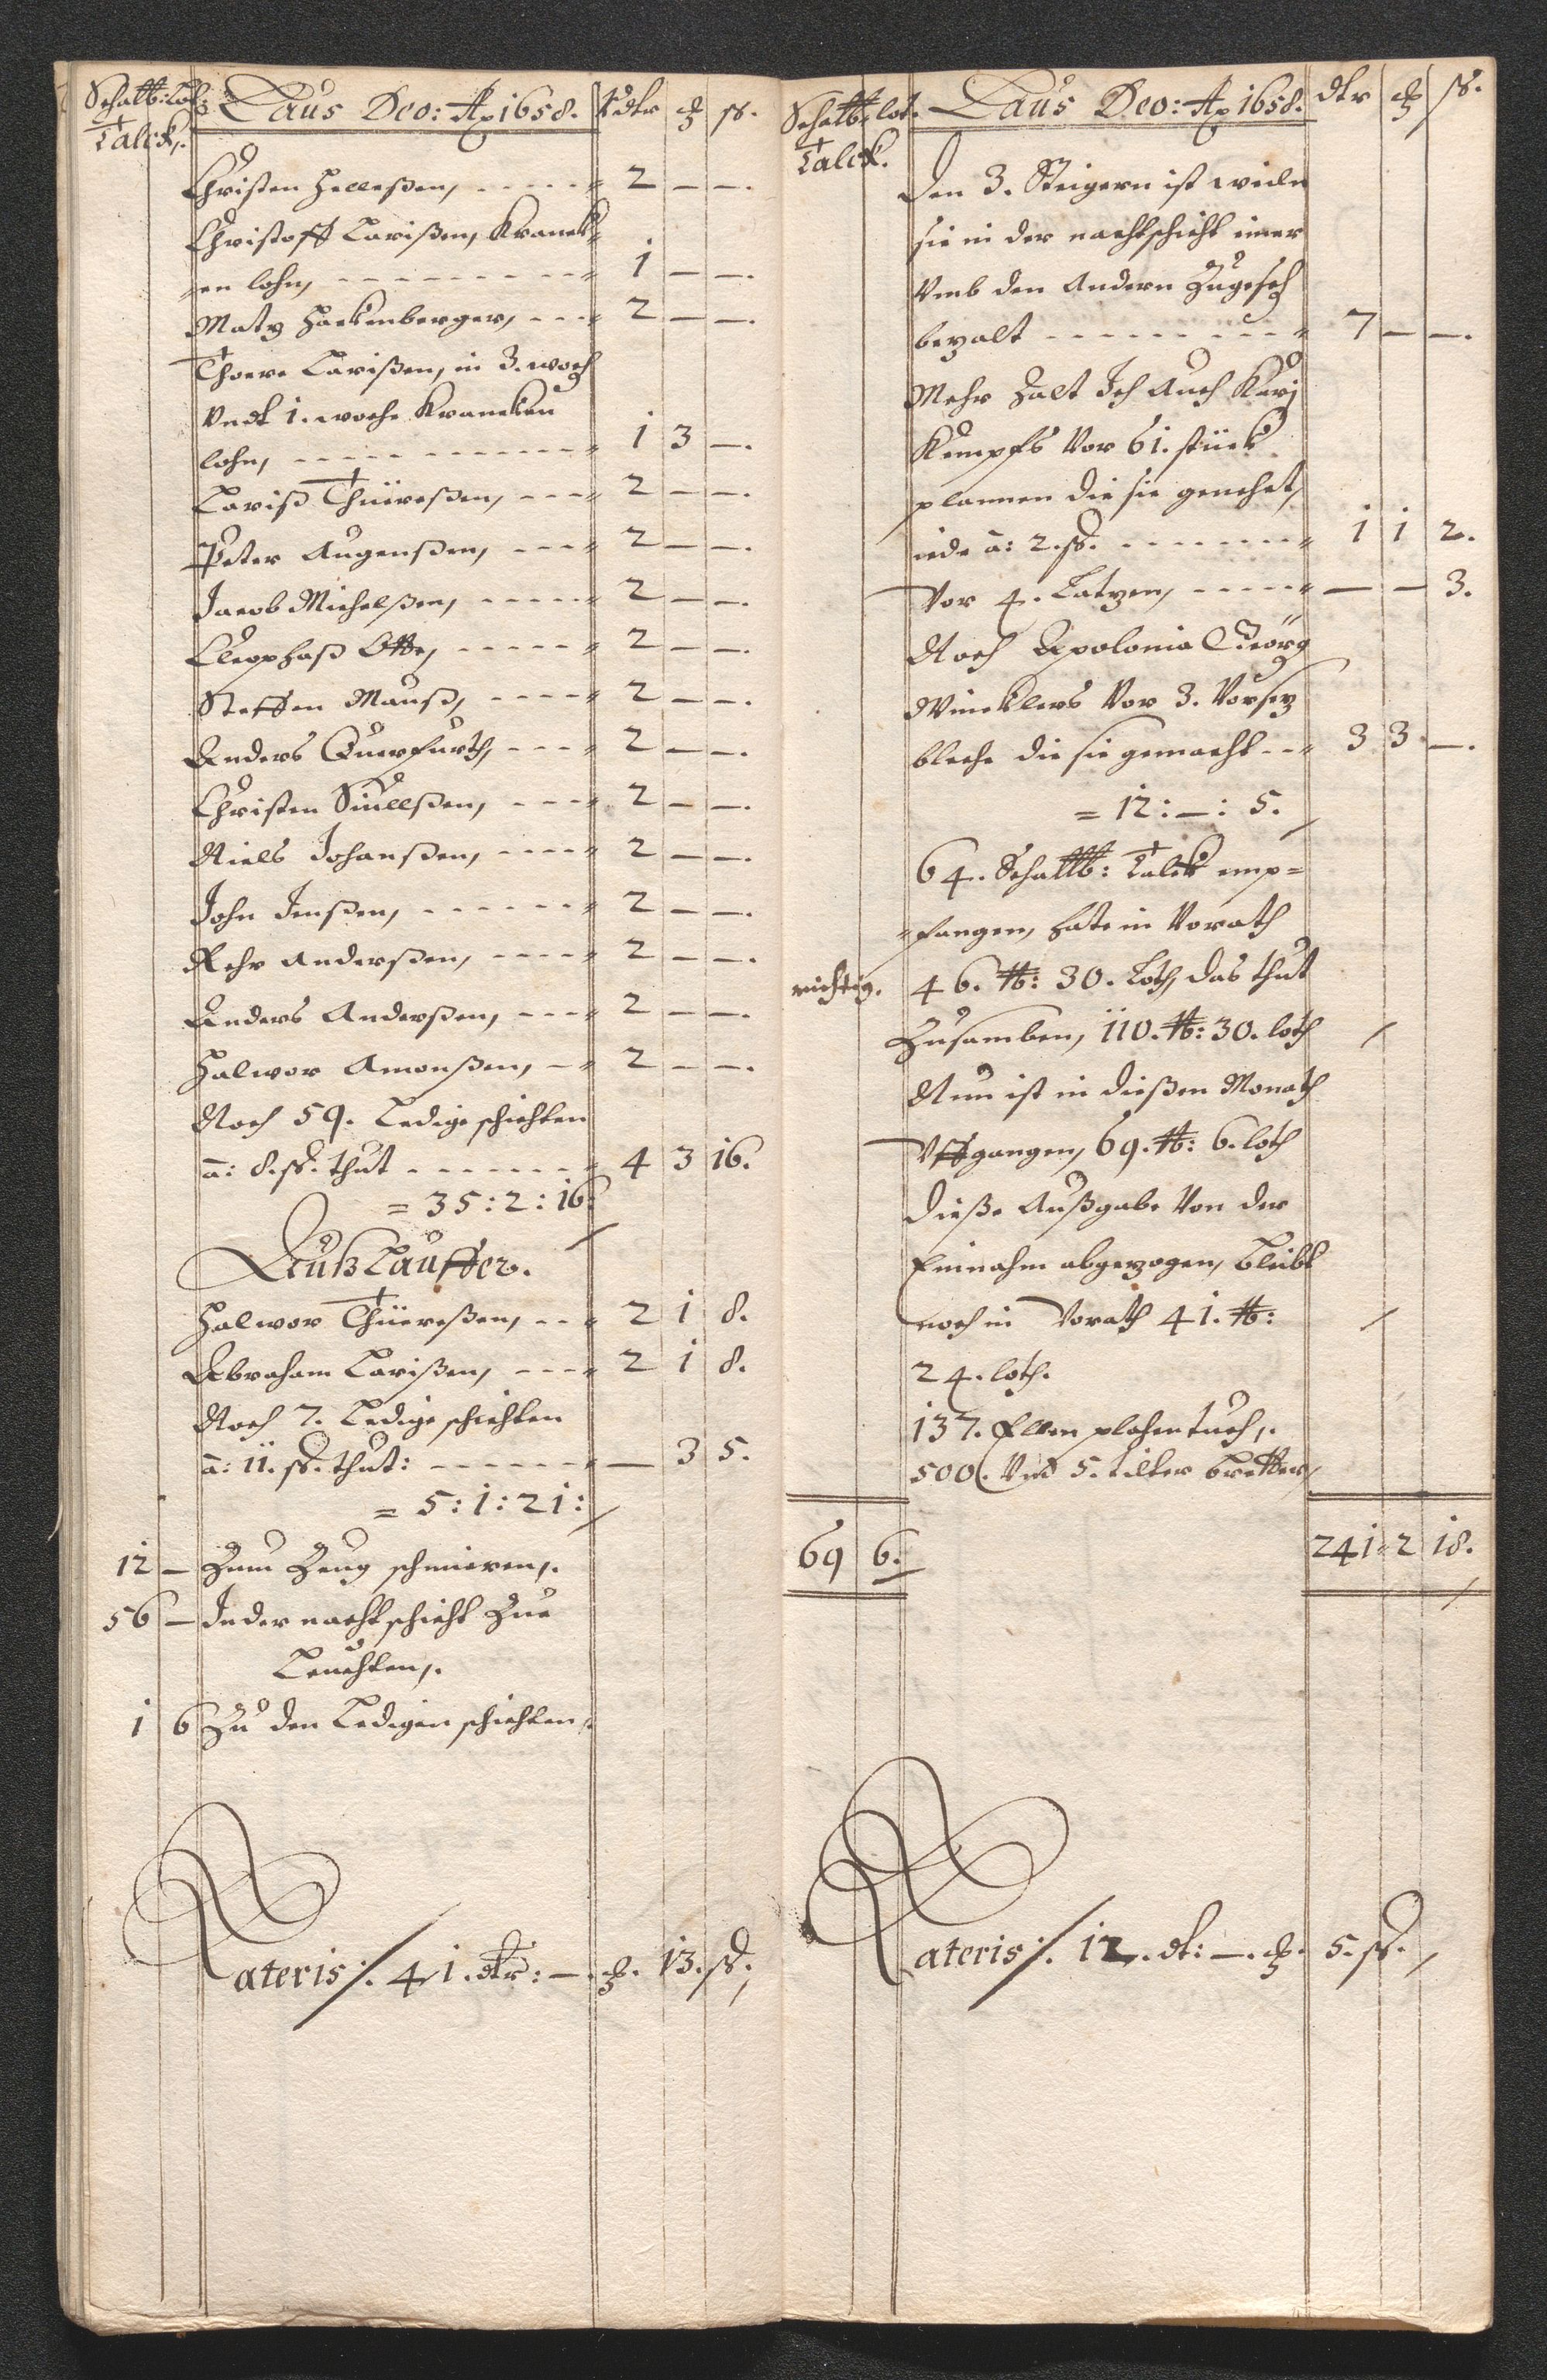 Schalb: Lot:
Talck,.
Laus Deo: Ao 1658. Rdlr ch ss.
Christen Hellessen, - - - - - 2 — —.
Christoff Larißen, Kranck=
=en lohn, - - - - - - - - - 1 — —.
Matz Hackenberger, - - - 2 — —.
Thoere Larißen, in 3. woch
Vndt 1. woche Krancken
lohn, - - - - - - - - - - - 1 3 —.
Lariß Thüereßen, - - - 2 — —.
Peter Augenßen, - - - 2 — —.
Jacob Michelßen, - - - - - 2 — —.
Cleophaß Otte, - - - - - 2 — —.
Steffen Mauß, - - - - - 2 — —.
Anders Querfurth, - - - 2 — —.
Christen Siullßen, - - - 2 — —.
Niels Johanßen, - - - - 2 — —.
John Jenßen, - - - - - - 2 — —.
Rehr Anderßen, - - - - 2 — —.
Anders Anderßen, - - - 2 — —.
Halwor Amonßen, - 2 — —.
Noch 59. Ledige schichten
a: 8. ss. thut - - - - - - - 4 3 16.
= 35 : 2 : 16:
Außlauffer.
Halwor Thüereßen, - - 2 1 8.
Abraham Larißen, - - - - 2 1 8.
Noch 7. Ledige schichten
a: 11. ss. thut: - - - - - - — 3 5.
= 5 : 1 : 21 :
12 — Zum Zeug schmieren,.
56 — In der nachtschicht Zue
Leuchten,.
1 6 Zu den Ledigen schichten,.
Lateris:/. 41. dlr: —. ch. 13. ss.
Schalb: lot.
Talck.
Laus Deo: Ao 1658. dlr ch ss.
Den 3. Steigern ist weiln
sie in der nachtschicht einer
Vmb den Andern Zugeseh
bezalt - - - - - - - - - 7 — —.
Mehr Zalt Ich Auch Karj
Kempfs Vor 61. stück
plannen die sie genehet,
iede a: 2. ss. - - - - - - - - 1 1 2.
Vor 4. Latzen, - - - - - — — 3.
Noch Apolonia Georg
Wincklers Vor 3. Vorsez
bleche die sie gemacht - - 3 3 —.
= 12 : — : 5.
64. Schalb: Talck emp=
=fangen, hate in Vorath
richtig. 46. lb: 30. Loth, das thut
Zusamben, 110. lb: 30. loth
Nun ist in dießen Monath
Vffgangen, 69. lb: 6. loth
Dieße Außgabe Von der
Einnahm abgezogen, bleibt
noch in Vorath 41. lb:
24. loth.
137. Ellen plahentuch,.
500. Vnd 5. tilter bretter,
69 6. 241 2 18.
Lateris:/. 12. dl: —. ch. 5. ss.